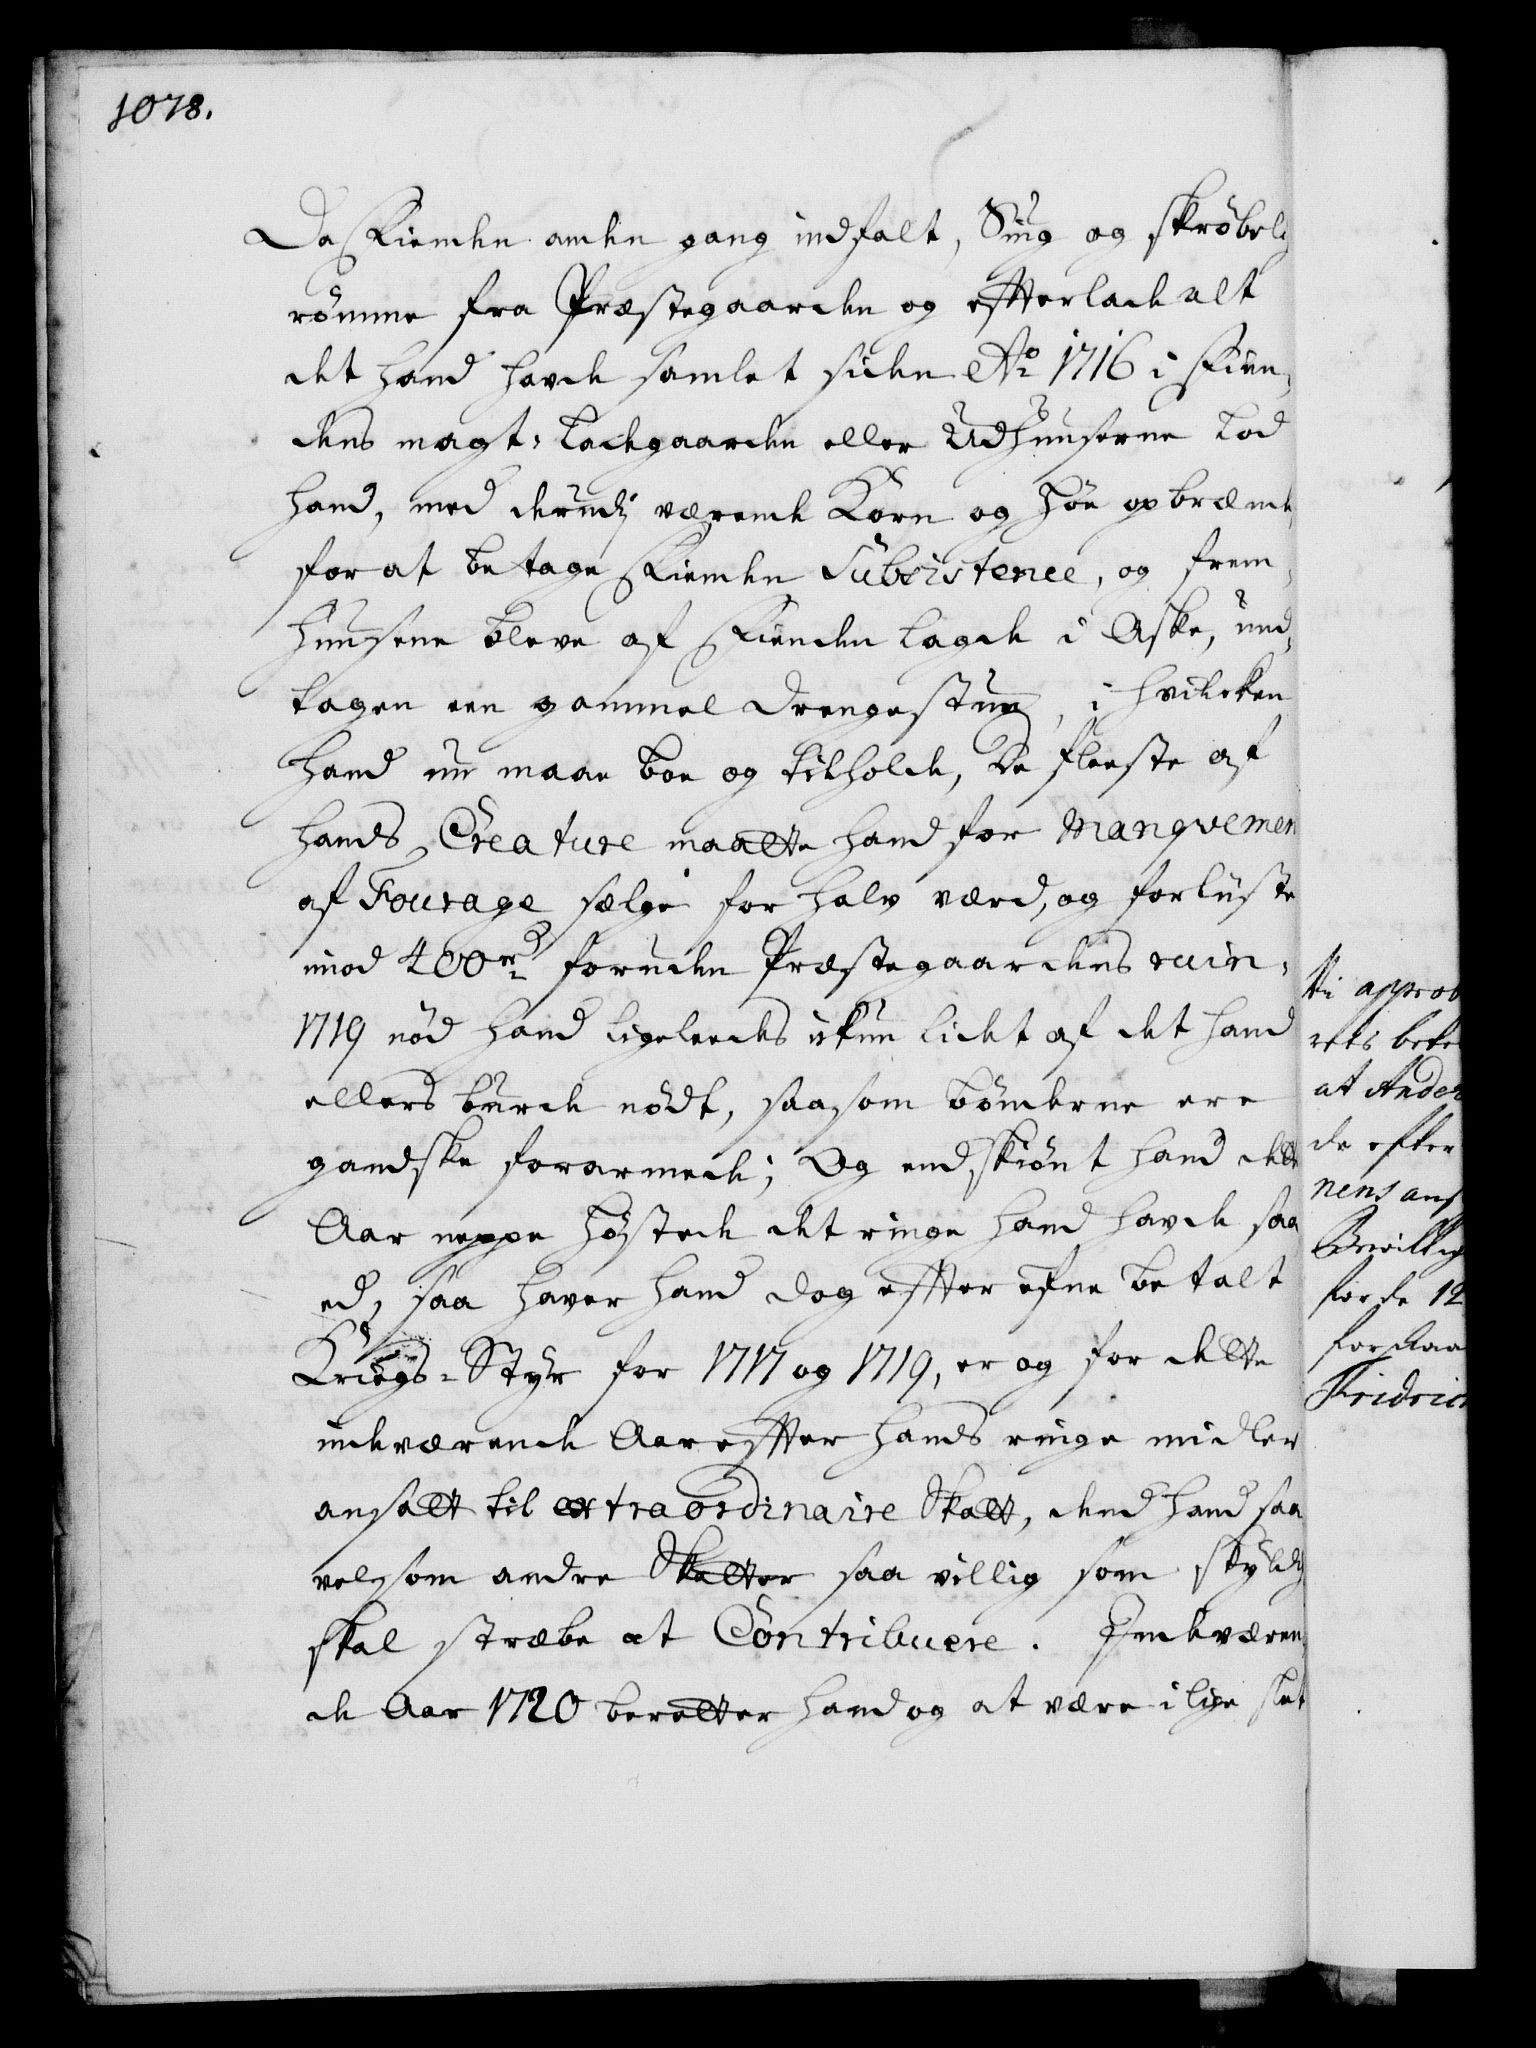 1078.
Da Fienden anden gang indfalt, Siug og skröbelig
römme fra Præstegaarden og efterlade alt
det hand havde samlet siden Ao 1716 i Fien-
dens magt: Ladegaarden eller Udhuuserne lod
hand, med derudj værende Korn og Höe opbrænde,
for at betage Fienden Subsistence, og frem-
huusene bleve af Fienden lagde i Aske, und-
tagen een gammel drengestue, i hvilcken
hand nu maae boe og tilholde, De fleeste af
hands Creature maatte hand for Manqvement
af Fourage sælge for halv værd, og forliiste
imod 400 rd foruden Præstegaardens ruin.
1719 nöd hand ligeleedes ickun lidet af det hand
ellers burde nödt, saasom bönderne ere
gandske forarmede; Og endskiönt hand dette
Aar neppe höstede det ringe hand havde saa-
ed, saa haver hand dog efter efne betalt
Kriegs-Styr for 1717 og 1719, er og for dette
indeværende Aar efter hands ringe midler
ansatt til extraordinaire Skatt, dend hand saa
vel som andre Skatter saa villig som skyldig
skal stræbe at Contribuere. Indeværen-
de Aar 1720 beretter hand og at være i lige slet
Vi approb
rets beta
at Ander
de efter
nens ans
Bevillig
for de 12
for
Fridric